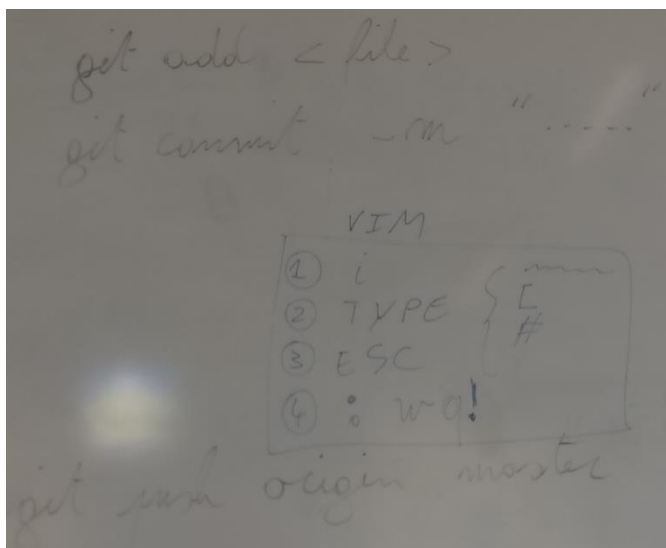 git add <file>
git commit -m "....."
VIM
① i
② TYPE { [
#
③ ESC
④ : wq!
git push origin master